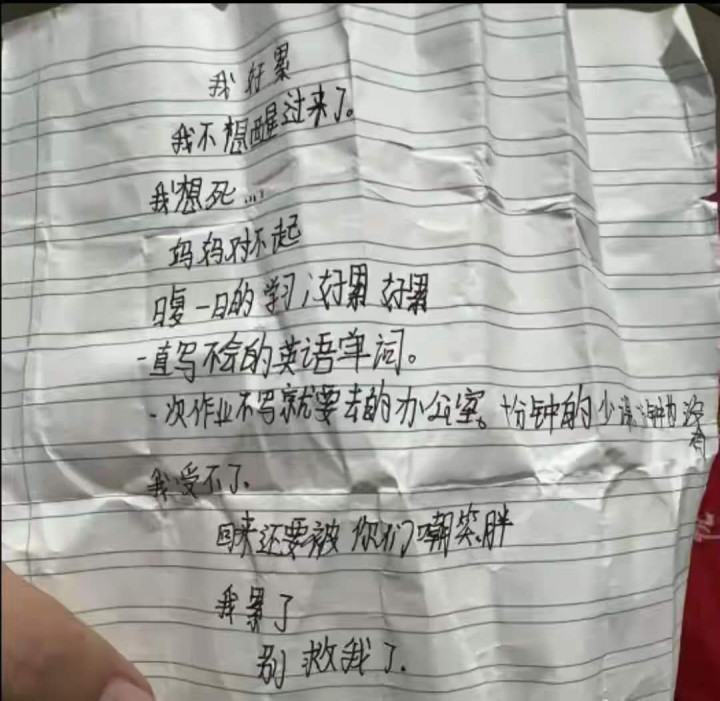 我好累
我不想醒过来了。
我想死...
妈妈对不起
日复一日的学习,好累 好累
一直写不会的英语单词。
一次作业不写就要去的办公室。十分钟的少误 分钟的没有
我受不了.
回来还要被你们嘲笑胖
我累了
别救我了.